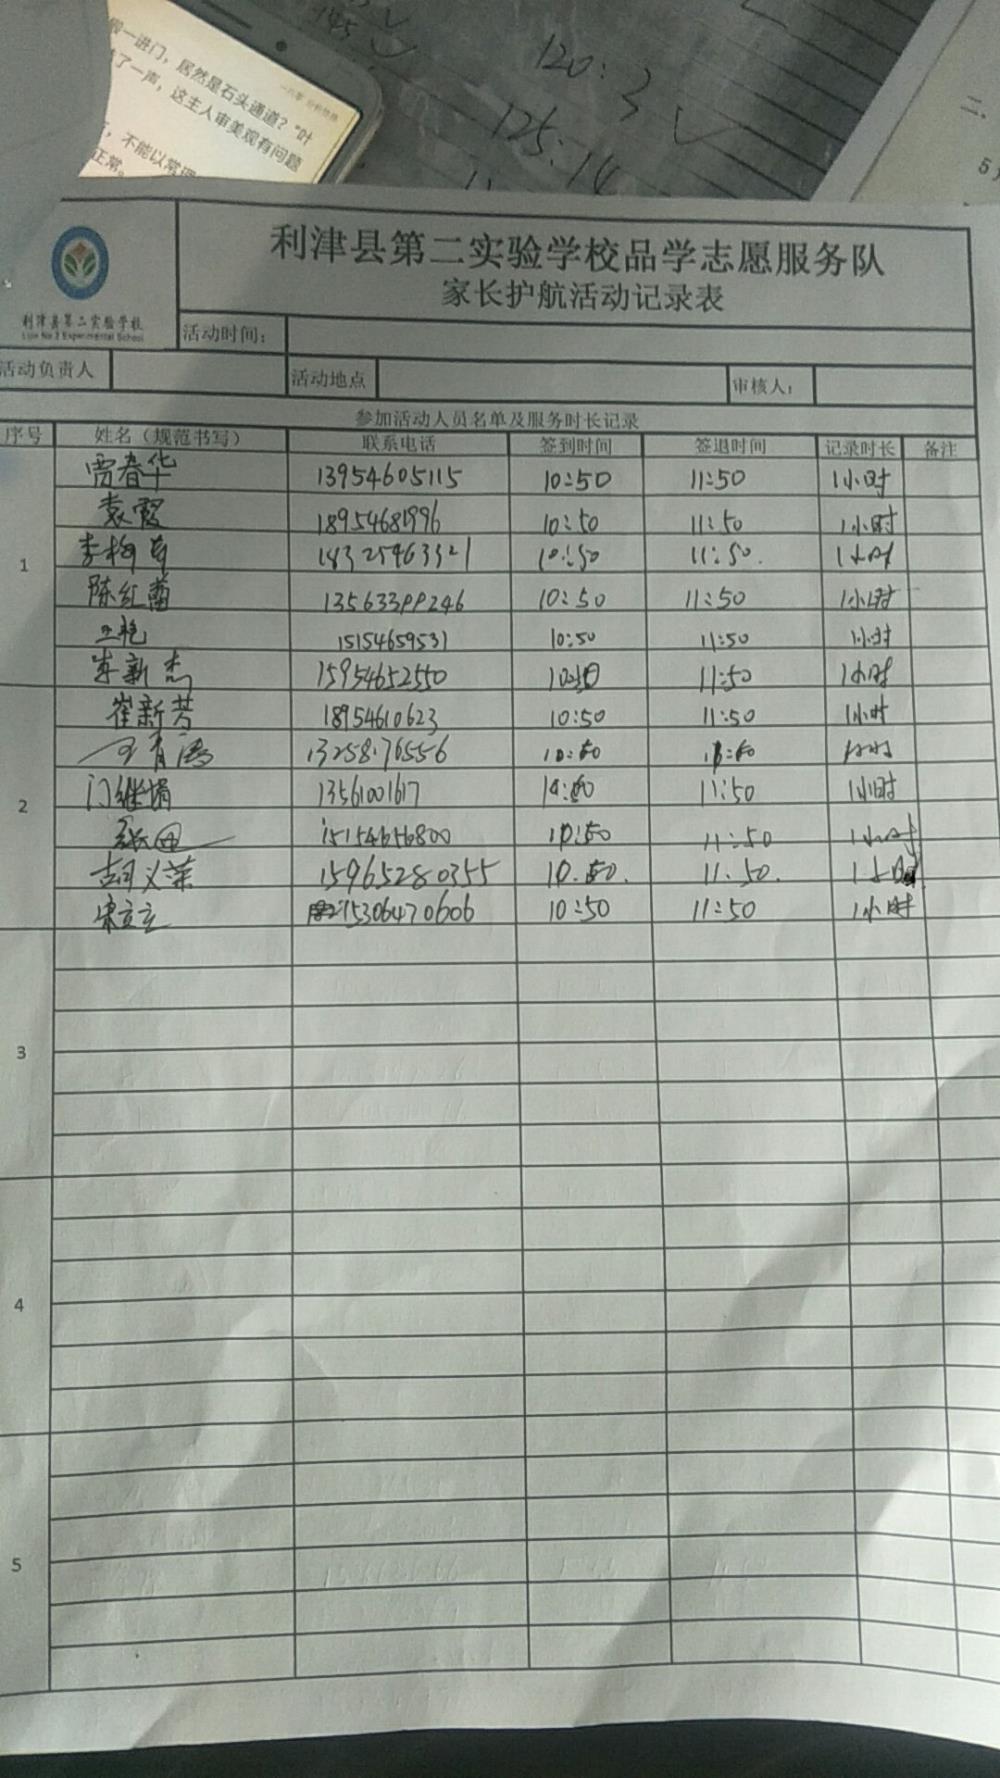 一进门，居然是石头通道？"叶
了一声，这主人审美观有问题
，不能以常理
正常。
145
120:3
125:14
二、
5月
利津县第二实验学校
Lijin No.2 Experimental School
利津县第二实验学校品学志愿服务队
家长护航活动记录表
活动时间：
活动负责人 活动地点 审核人：
参加活动人员名单及服务时长记录
序号 姓名（规范书写） 联系电话 签到时间 签退时间 记录时长 备注
贾春华 13954605115 10:50 11:50 1小时
袁霞 18954681996 10:50 11:50 1小时
1 李梅 18325463321 10:50 11:50. 1小时
陈红蕾 13563399246 10:50 11:50 1小时
王艳 15154659531 10:50 11:50 1小时
李新杰 15954652550 10:50 11:50 1小时
崔新芳 18954610623 10:50 11:50 1小时
13258176556 10:50 11:50 1小时
2 门继娟 13561001617 10:50 11:50 1小时
15154656800 10:50 11:50 1小时
胡义荣 15965280355 10.50. 11.50. 1小时
宋立立 15306470606 10:50 11:50 1小时
3
4
5